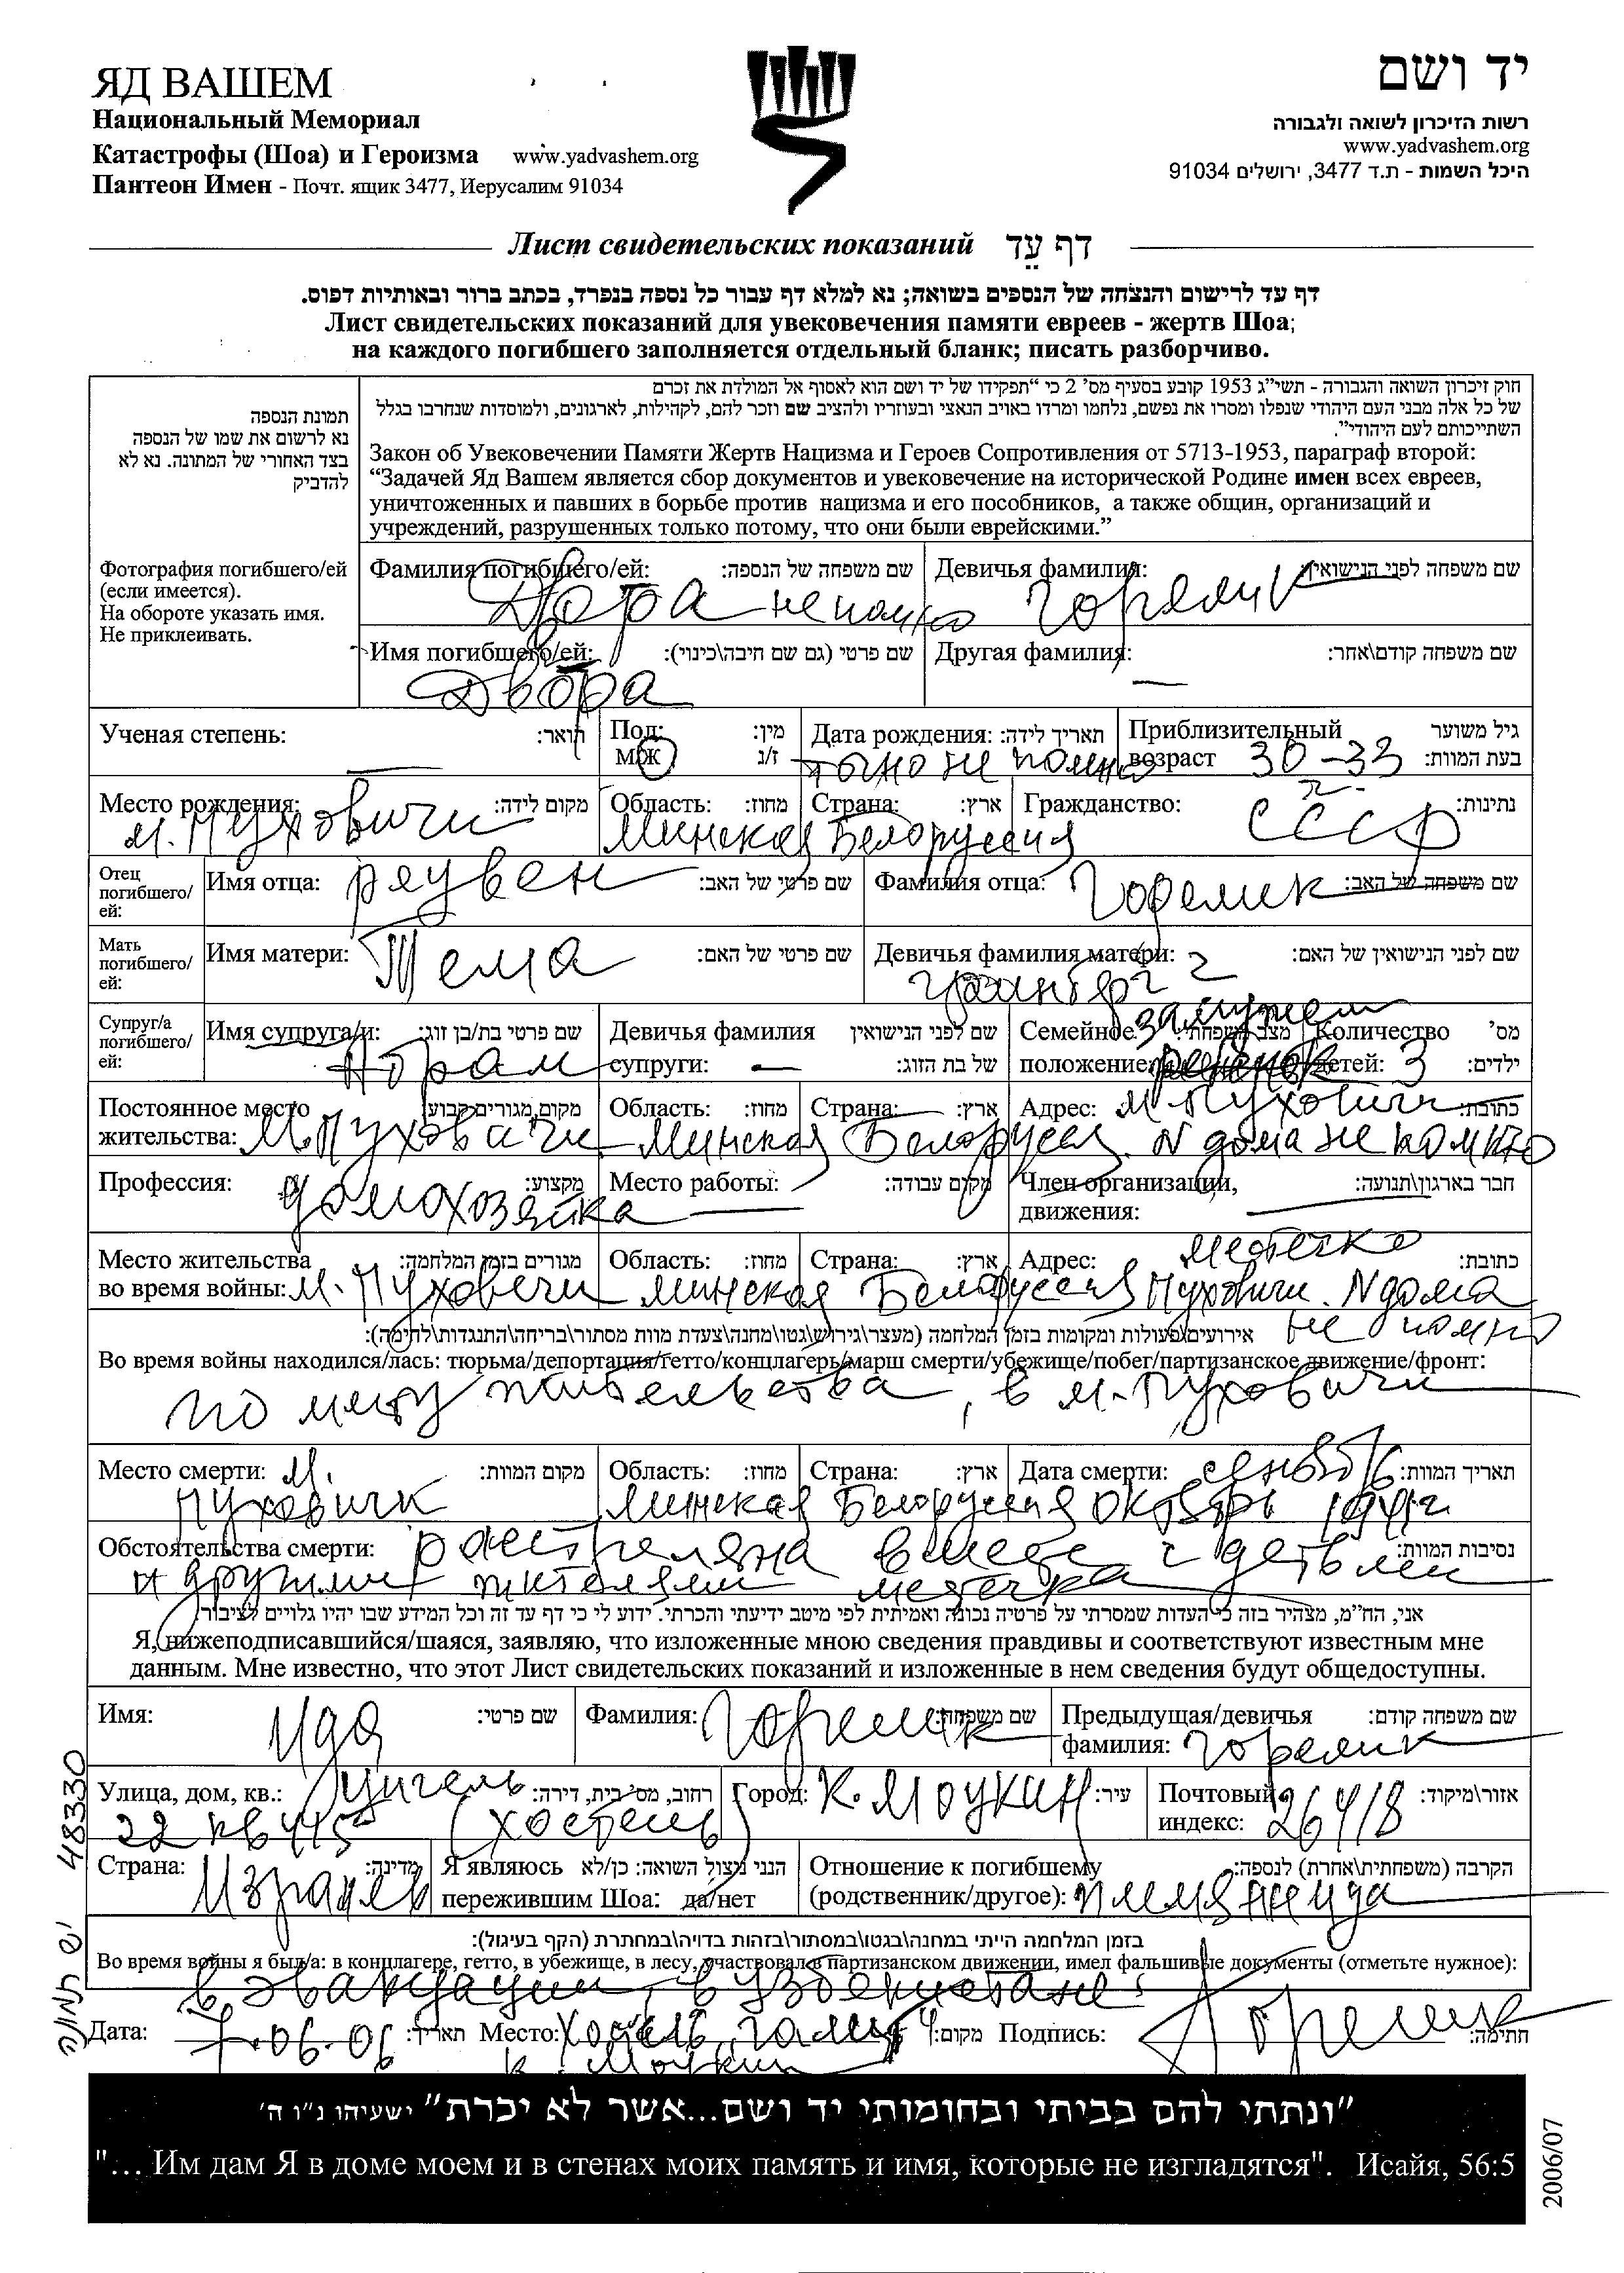 ЯД ВАШЕМ
Национальный Мемориал
Катастрофы (Шоа) и Героизма www.yadvashem.org
Пантеон Имен - Почт. ящик 3477, Иерусалим 91034
יד ושם
רשות הזיכרון לשואה ולגבורה
www.yadvashem.org
היכל השמות - ת.ד 3477, ירושלים 91034
Лист свидетельских показаний דף עֵד
דף עד לרישום והנצחה של הנספים בשואה; נא למלא דף עבור כל נספה בנפרד, בכתב ברור ובאותיות דפוס.
Лист свидетельских показаний для увековечения памяти евреев - жертв Шоа;
на каждого погибшего заполняется отдельный бланк; писать разборчиво.
תמונת הנספה
נא לרשום את שמו של הנספה
בצד האחורי של המתונה. נא לא
להדביק
Фотография погибшего/ей
(если имеется).
На обороте указать имя.
Не приклеивать.
חוק זיכרון השואה והגבורה - תשי"ג 1953 קובע בסעיף מס' 2 כי "תפקידו של יד ושם הוא לאסוף אל המולדת את זכרם
של כל אלה מבני העם היהודי שנפלו ומסרו את נפשם, נלחמו ומרדו באויב הנאצי ובעוזריו ולהציב שם וזכר להם, לקהילות, לארגונים, ולמוסדות שנחרבו בגלל
השתייכותם לעם היהודי".
Закон об Увековечении Памяти Жертв Нацизма и Героев Сопротивления от 5713-1953, параграф второй:
"Задачей Яд Вашем является сбор документов и увековечение на исторической Родине имен всех евреев,
уничтоженных и павших в борьбе против нацизма и его пособников, а также общин, организаций и
учреждений, разрушенных только потому, что они были еврейскими."
Фамилия погибшего/ей: שם משפחה של הנספה: Девичья фамилия: שם משפחה לפני הנישואין:
Двора не помню Горелик
Имя погибшего/ей: שם פרטי (גם שם חיבה\כינוי): Другая фамилия: שם משפחה קודם\אחר:
Двора —
Ученая степень: תואר: Пол: מין: Дата рождения: תאריך לידה: Приблизительный גיל משוער
— М/Ж ז/נ точно не помню возраст 30-33 בעת המוות:
Место рождения: מקום לידה: Область: מחוז: Страна: ארץ: Гражданство: נתינות:
м. Пуховичи Минская Белоруссия СССР
Отец погибшего/ей: Имя отца: Реувен שם פרטי של האב: Фамилия отца: Горелик שם משפחה של האב:
Мать погибшего/ей: Имя матери: Тема שם פרטי של האם: Девичья фамилия матери: שם לפני הנישואין של האם:
Супруг/а погибшего/ей: Имя супруга/и: שם פרטי בת/בן זוג: Девичья фамилия שם לפני הנישואין Семейное замужем מצב משפחתי: Количество מס'
Абрам супруги: — של בת הזוג: положение: детей: 3 ילדים:
Постоянное место מקום מגורים קבוע: Область: מחוז: Страна: ארץ: Адрес: м. Пуховичи כתובת:
жительства: м. Пуховичи Минская Белоруссия N дома не помню
Профессия: домохозяйка מקצוע: Место работы: — מקום עבודה: Член организации, חבר בארגון\תנועה:
движения: —
Место жительства מגורים בזמן המלחמה: Область: מחוז: Страна: ארץ: Адрес: местечко כתובת:
во время войны: м. Пуховичи Минская Белоруссия Пуховичи. N дома
не помню
אירועים\פעולות ומקומות בזמן המלחמה (מעצר\גירוש\גטו\מחנה\צעדת מוות מסתור\בריחה\התנגדות\לחימה):
Во время войны находился/лась: тюрьма/депортация/гетто/концлагерь/марш смерти/убежище/побег/партизанское движение/фронт:
по месту жительства, в м. Пуховичи
Место смерти: м. מקום המוות: Область: מחוז: Страна: ארץ: Дата смерти: תאריך המוות:
Пуховичи Минская Белоруссия октябрь 1941 г
Обстоятельства смерти: расстреляна вместе с детьми נסיבות המוות:
и другими жителями местечка
אני, הח"מ, מצהיר בזה כי העדות שמסרתי על פרטיה נכונה ואמיתית לפי מיטב ידיעתי והכרתי. ידוע לי כי דף עד זה וכל המידע שבו יהיו גלויים לציבור.
Я, нижеподписавшийся/шаяся, заявляю, что изложенные мною сведения правдивы и соответствуют известным мне
данным. Мне известно, что этот Лист свидетельских показаний и изложенные в нем сведения будут общедоступны.
Имя: Ида שם פרטי: Фамилия: Горелик שם משפחה: Предыдущая/девичья שם משפחה קודם:
фамилия: Горелик
Улица, дом, кв.: רחוב, מס' בית, דירה: Город: К. Моцкин עיר: Почтовый אזור\מיקוד:
22 кв 445 (хостель) индекс: 26418
Страна: Израиль מדינה: Я являюсь הנני ניצול השואה: כן/לא Отношение к погибшему הקרבה (משפחתית\אחרת) לנספה:
пережившим Шоа: да/нет (родственник/другое): племянница
בזמן המלחמה הייתי במחנה\בגטו\במסתור\בזהות בדויה\במחתרת (הקף בעיגול):
Во время войны я был/а: в концлагере, гетто, в убежище, в лесу, участвовал в партизанском движении, имел фальшивые документы (отметьте нужное):
в эвакуации, в Узбекистане
Дата: 7.06.06 תאריך: Место: Хостель מקום: Подпись: Горелик חתימה:
К. Моцкин
48330
יש תמונה
"ונתתי להם בביתי ובחומותי יד ושם...אשר לא יכרת" ישעיהו נ"ו ה'
"... Им дам Я в доме моем и в стенах моих память и имя, которые не изгладятся". Исайя, 56:5
2006/07